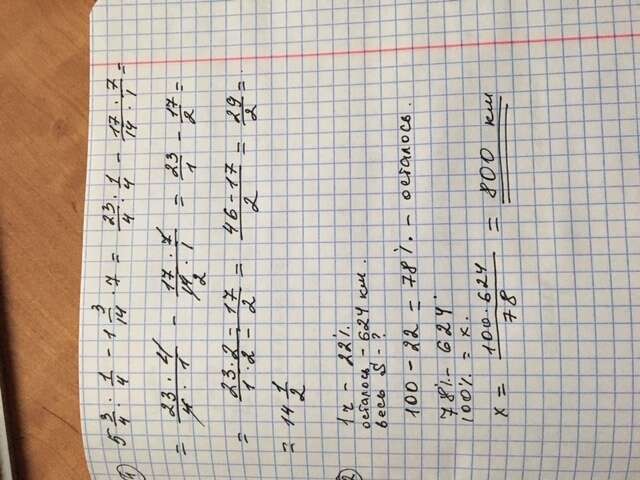 1) 5 3/4 : 1/4 - 1 3/14 · 7 = 23/4 : 1/4 - 17/14 · 7/1 =
= 23 · 4 / 4 · 1 - 17 · 7 / 14 2 · 1 = 23/1 - 17/2 =
= 23 · 2 / 1 · 2 - 17/2 = 46 - 17 / 2 = 29/2 =
= 14 1/2
2
1ч - 22%.
осталось - 624 км.
весь S - ?
100 - 22 = 78%. - осталось.
78% - 624.
100% = x.
x = 100 · 624 / 78 = 800 км